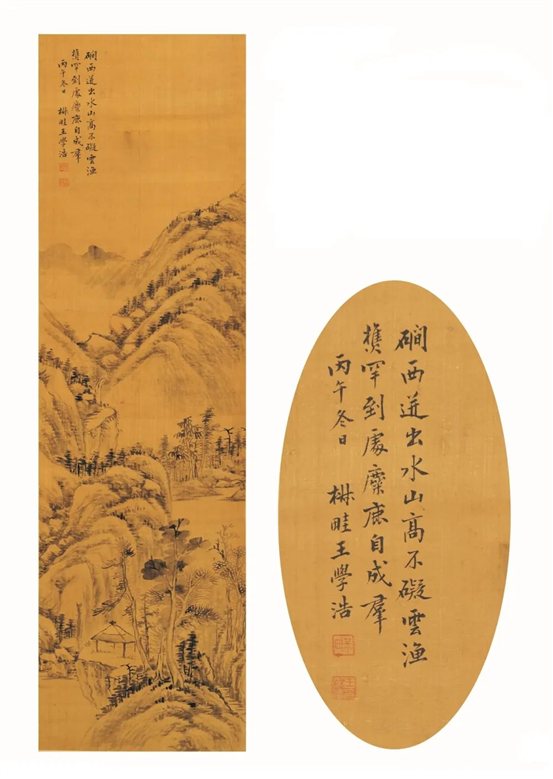 磵西迸出水山高不礙雲漁
樵罕到處麋鹿自成羣
丙午冬日 椒畦王學浩
磵西迸出水山高不礙雲漁
樵罕到處麋鹿自成羣
丙午冬日 椒畦王學浩